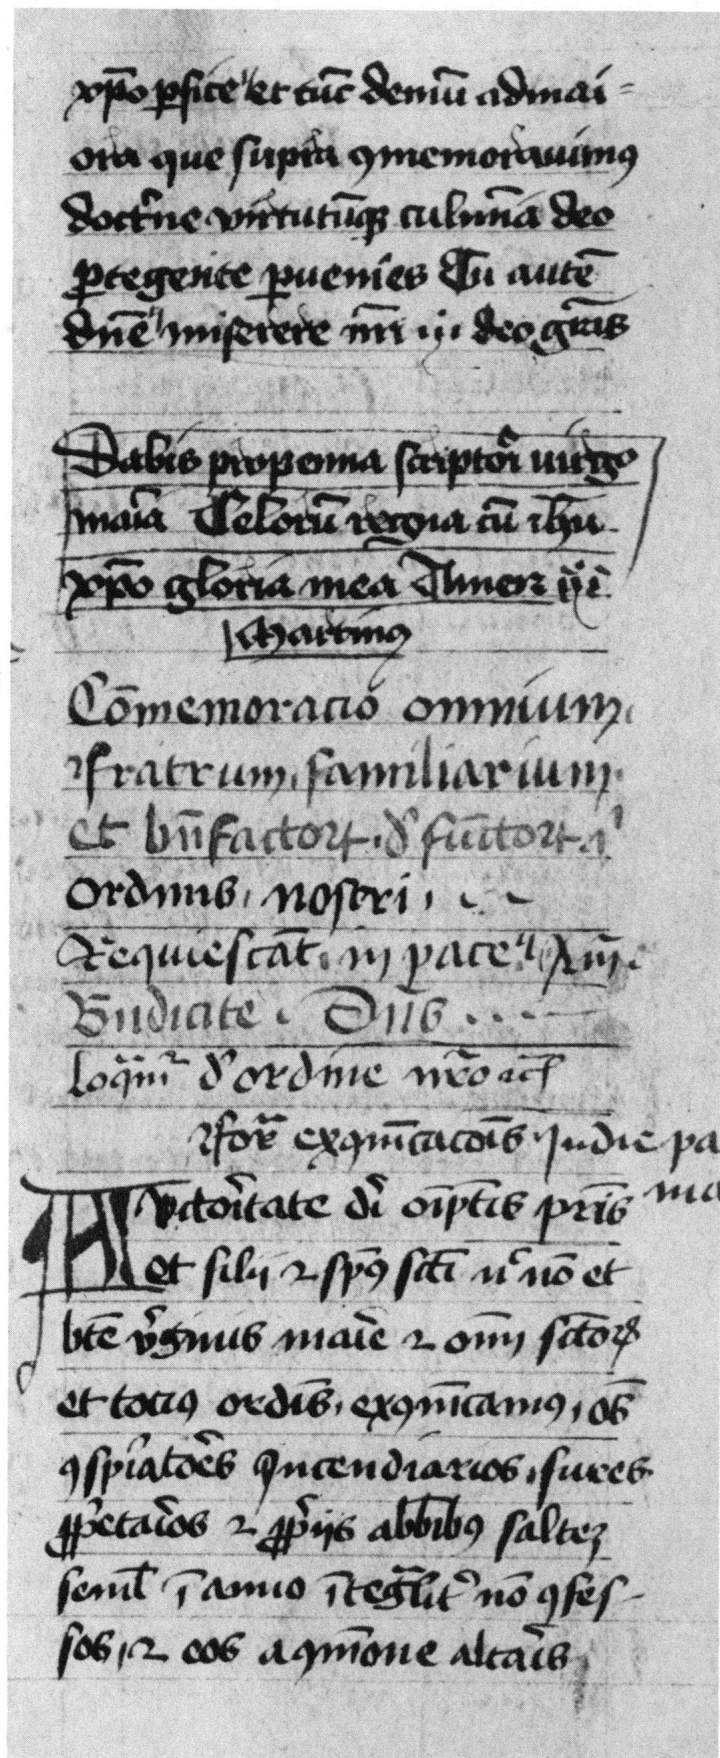 xp̄o p̄fice et tūc demū ad mai-
ora que supra ꝯmemorauimꝰ
doctⁱne virtutūqꝫ culmīa deo
ꝓtegente ꝑuenies Tu autē
dn̄e miserere nr̄i deo gr̄as
Dabis pro penna scriptori uirgo
maīa Celorū regna cū ihū
xp̄o gloria mea Amen
Martinꝰ
Cōmemoracio omnium
fratrum familiarium
et bn̄factorꝝ dˀfūctorꝝ
ordinis nostri
Requiescāt in pace Am̄
Bn̄dicite Dn̄s
loqm̄r dˀ ordine nr̄o
for̄ exꝯm̄cacōis In die pa
Auctor̄itate dī oīp̄tis pr̄is ma
et filij ⁊ sp̄ꝰ sc̄ti nō et
bt̄e vⁱginis maīe ⁊ om̄i sc̄torꝝ
et tociꝰ ordīs exꝯm̄icamꝰ oēs
ꝯspīatoēs Incendiarios fures
ꝓp̄etaīos ⁊ ꝓpⁱis abb̄ibꝰ saltez
seml̄ ī anno īteḡlitˀ nō ꝯfes-
sos ⁊ eos a ꝯm̄one altaīs